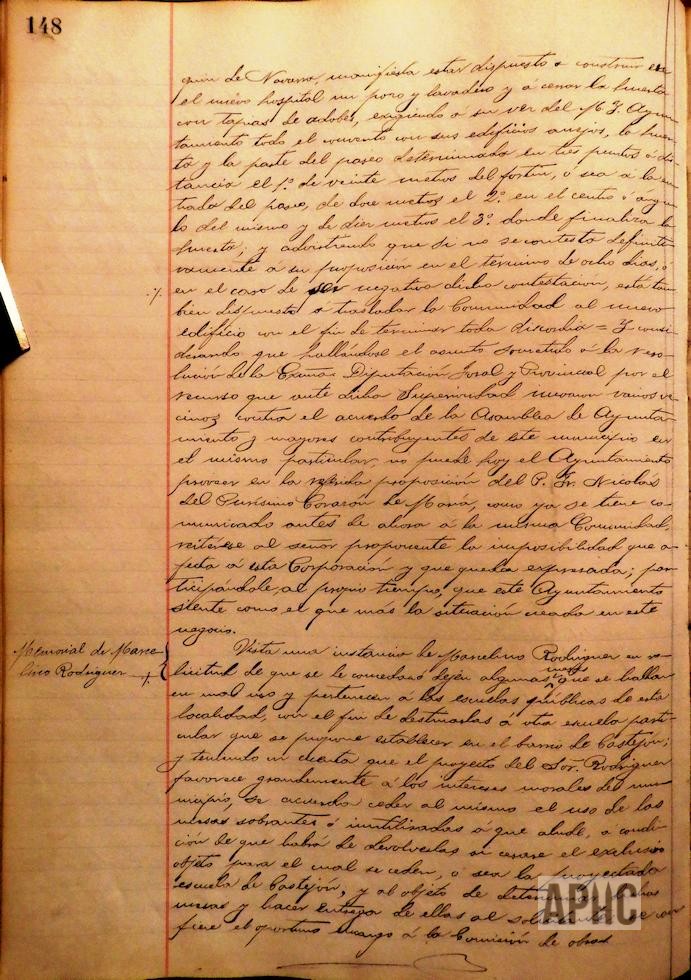 148
quin de Navarra, manifiesta estar dispuesto a construir en
el nuevo hospital un pozo y lavadero y á cerrar la huerta
con tapias de adobes, exigiendo á su vez del M. I. Ayun-
tamiento todo el convento con sus edificios anejos, la huer-
ta y la parte del paseo determinada en tres puntos á dis-
tancia el 1º de veinte metros del fortin, ó sea a la en-
trada del paseo, de doce metros el 2º en el centro ó angu-
lo del mismo y de diez metros el 3º donde finaliza la
huerta; y advirtiendo que si no se contesta definiti-
vamente a su proposición en el termino de ocho dias, ó
en el caso de ser negativa dicha contestacion, está tam-
bien dispuesto a trasladar la Comunidad al nuevo
edificio con el fin de terminar toda discordia = Y consi-
derando que hallándose el asunto sometido á la reso-
lución de la Excma Diputación Foral y Provincial por el
recurso que ante dicha Superioridad incoaron varios ve-
cinos contra el acuerdo de la Asamblea de Ayunta-
miento y mayores contribuyentes de este municipio en
el mismo particular, no puede hoy el Ayuntamiento
proveer en la referida proposición del P. Fr. Nicolás
del Purísimo Corazón de María, como ya se tiene co-
municado antes de ahora á la misma Comunidad,
reitérese al señor proponente la imposibilidad que a-
fecta á esta Corporación y que queda expresada; par-
ticipándole, al propio tiempo, que este Ayuntamiento
siente como el que más la situación creada en este
negocio.
Memorial de Marce-
lino Rodriguez
Vista una instancia de Marcelino Rodriguez en so-
licitud de que se le conceda dejen algunas mesas que se hallan
en mal uso y pertenecen á las escuelas públicas de esta
localidad, con el fin de destinarlas á otra escuela parti-
cular que se propone establecer en el barrio de Castejón;
y teniendo en cuenta que el proyecto del Sor. Rodriguez
favorece grandemente á los intereses morales del mu-
nicipio, se acuerda ceder al mismo el uso de las
mesas sobrantes ó inutilizadas á que alude, a condi-
ción de que habrá de devolverlas si cesare el exclusivo
objeto para el cual se ceden, ó sea la proyectada
escuela de Castejón, y al objeto de determinar dichas
mesas y hacer entrega de ellas al solicitante se con-
fiere el oportuno encargo á la Comisión de obras
APHC